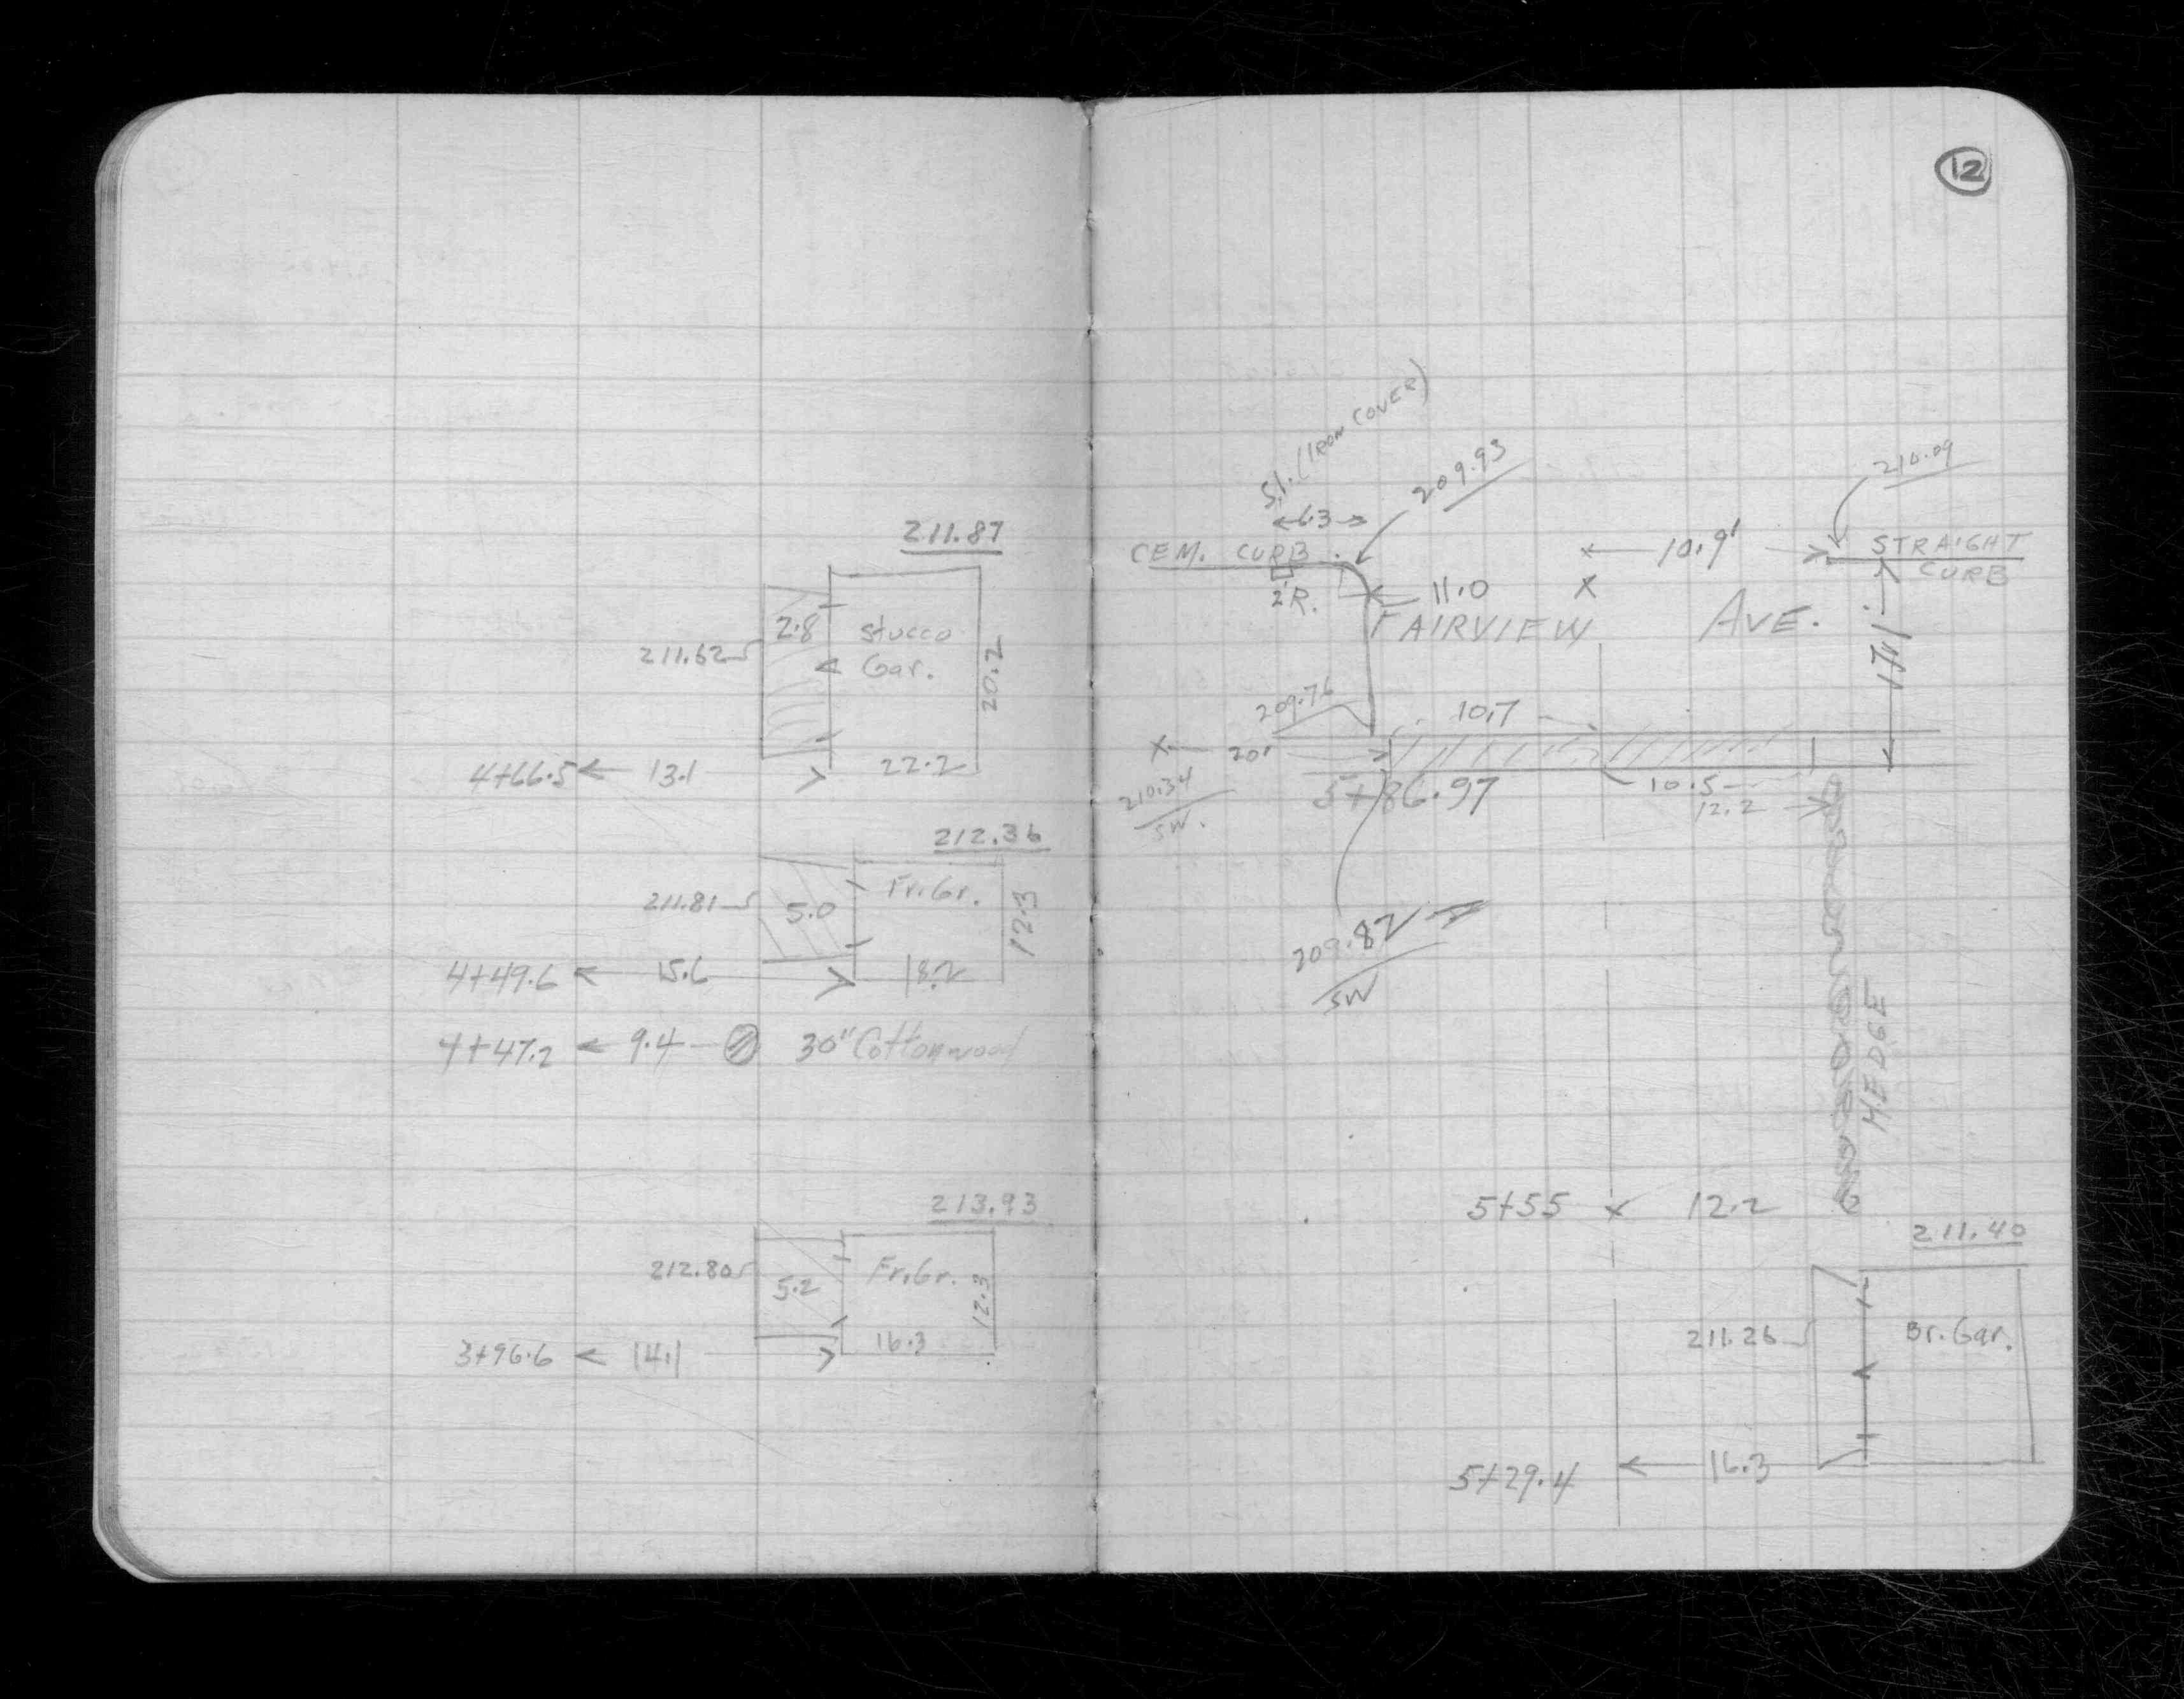 211.87
2.8 Stucco
211.62 Gar.
20.2
4+66.5 13.1 22.2
212.36
Fr.Gr.
211.81 5.0
12.3
4+49.6 15.6 18.2
4+47.2 9.4 30" Cottonwood
213.93
212.80 5.2 Fr.Gr.
12.3
16.3
3+96.6 14.1
12
S.I. (IRON COVER)
209.93
210.09
6.3
CEM. CURB 10.9' STRAIGHT
CURB
2'R. 11.0
FAIRVIEW AVE.
209.76
10.7
20'
210.34
SW.
5+86.97 10.5
12.2
209.82
SW
HEDGE
5+55 12.2
211.40
211.26 Br. Gar.
5+29.4 16.3